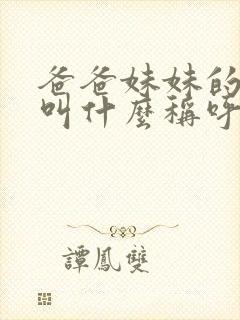 爸爸妹妹的
叫什麼稱呼
譚鳳雙